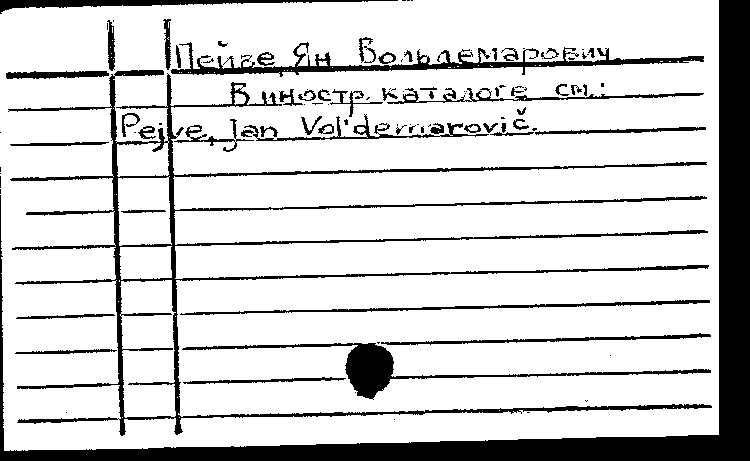 Пейве, Ян Вольдемарович.
В иностр. каталоге см.:
Pejve, Jan Vol'demarovič.